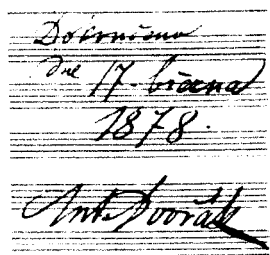 Dokončeno
dne 17. března
1878.
Ant. Dvořák